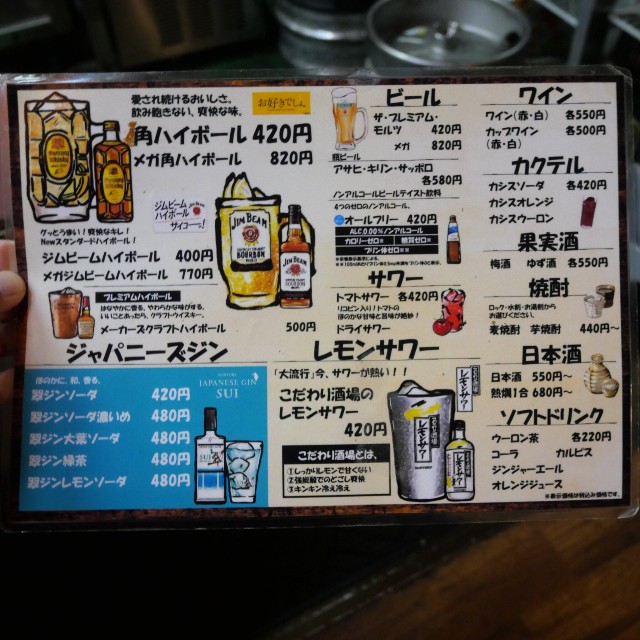 愛され続けるおいしさ。
飲み飽きない、爽快な味。
お好きでしょ。
角ハイボール 420円
メガ角ハイボール 820円
ジムビーム
ハイボール
サイコーっ!
グッとうまい!爽快なキレ!
Newスタンダードハイボール!
ジムビームハイボール 400円
メガジムビームハイボール 770円
JIM BEAM
BOURBON
JIM BEAM
プレミアムハイボール
メーカーズクラフトハイボール 500円
ジャパニーズジン
ほのかに、和、香る。
翠ジンソーダ 420円
翠ジンソーダ濃いめ 480円
翠ジン大葉ソーダ 480円
翠ジン緑茶 480円
翠ジンレモンソーダ 480円
JAPANESE GIN
SUI
ビール
ザ・プレミアム・
モルツ 420円
メガ 820円
瓶ビール
アサヒ・キリン・サッポロ
各580円
ノンアルコールビールテイスト飲料
4つのゼロのノンアルコール。
オールフリー 420円
ALC.0.00%ノンアルコール
カロリーゼロ※ 糖質ゼロ※
プリン体ゼロ※※
サワー
トマトサワー 各420円
リコピン入り!トマトの
ほのかな甘味と旨味が絶妙!
ドライサワー
レモンサワー
「大流行」今、サワーが熱い!!
こだわり酒場の
レモンサワー
420円
こだわり酒場とは、
①しっかりレモンで甘くない
②強炭酸でのどごし爽快
③キンキン冷え冷え
レモンサワー
ワイン
ワイン(赤・白) 各550円
カップワイン 各500円
(赤・白)
カクテル
カシスソーダ 各420円
カシスオレンジ
カシスウーロン
果実酒
梅酒 ゆず酒 各550円
焼酎
ロック・水割・お湯割から
お選びください。
麦焼酎 芋焼酎 440円~
日本酒
日本酒 550円~
熱燗1合 680円~
ソフトドリンク
ウーロン茶 各220円
コーラ カルピス
ジンジャーエール
オレンジジュース
※表示価格は税込み価格です。